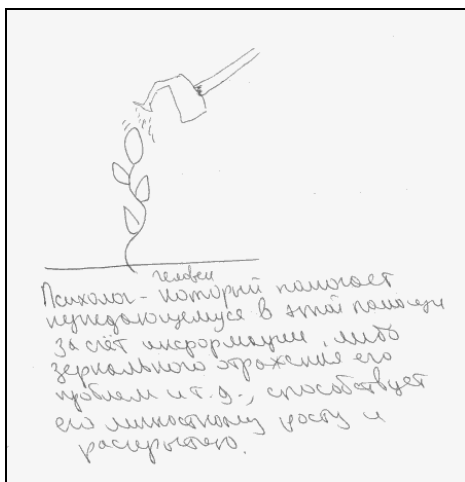 человек
Психолог - который помогает
нуждающемуся в этой помощи
за счёт информации, либо
зеркального отражения его
проблем и т. д., способствует
его личностному росту и
раскрытию.